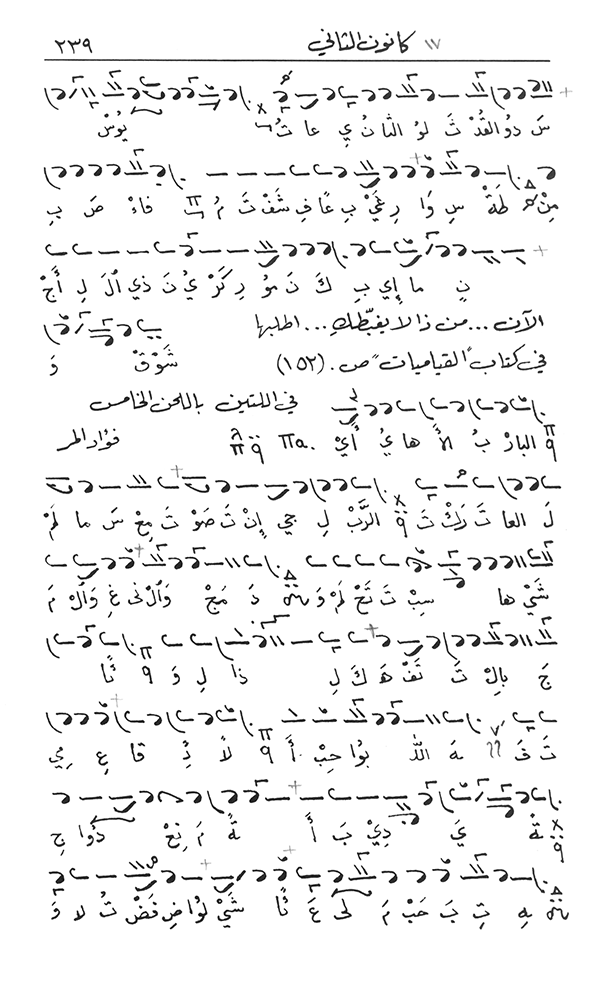 ١٧ كانون الثاني ٢٣٩
سَ دُو القُدْ ثَ لُو الثا نُ يِ عا تُ يُوسْ
مِنْ طَةْ سِ وَا رِ غَيْ بِ عًا فِ شَفْ تَ مُ فاءْ صَ بِ
نٍ ما إِي بِ كَ نَ مُو رِ كَرْ يُ نَ ذي الَ لِ أَجْ
الآن ...من ذا لا يغبّطكِ... اطلبها شَوْقْ وَ
في كتاب "القياميات" ص. (١٥٢)
في اللتين باللحن الخامس
البارْ بُ الأَ ها يُ أَيْ فؤاد المر
لَ العا تَ رَكْ تَ الرَّبْ لِ جي إِنْ تَ صَوْ تَ مِعْ سَ ما لَمْ
شَيْ ها سِبْ تَ تَحْ لَمْ وَ دَ مَجْ وَالْ نى غِ وَالْ مَ
جَ بالِ تَ تَفْ هَ كَ لِ ذا لِ وَ ثًا
تَ فَ هَ اللّٰ بُوا حِبْ أَ لاً ئِ قا عِ مِي
ةْ يَ دِيْ بَ أَ ةً مَ نِعْ دُوا جِ
هِ تِ بَ حَبْ مَ لى عَ ئًا شَيْ لُوا ضِ فَضْ تُ لا وَ